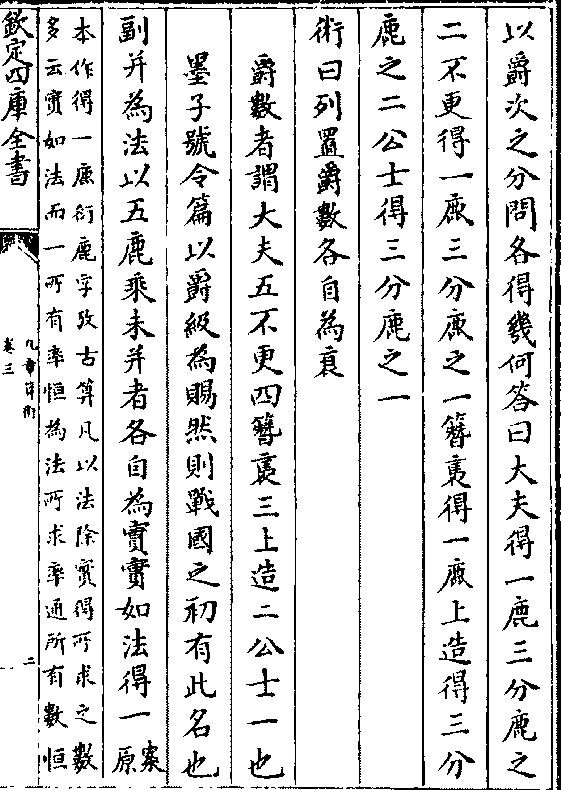 以爵次之分問各得幾何答曰大夫得一鹿三分鹿之
二不更得一鹿三分鹿之一簪褭得一鹿上造得三分
鹿之二公士得三分鹿之一
術曰列置爵數各自為衰
爵數者謂大夫五不更四簪褭三上造二公士一也
墨子號令篇以爵級為賜然則戰國之初有此名也
副并為法以五鹿乘未并者各自為實實如法得一案原
本作得一鹿衍鹿字攷古算凡以法除實得所求之數
多云實如法而一所有率恒為法所求率通所有數恒
欽定四庫全書
九章算術
卷三
二